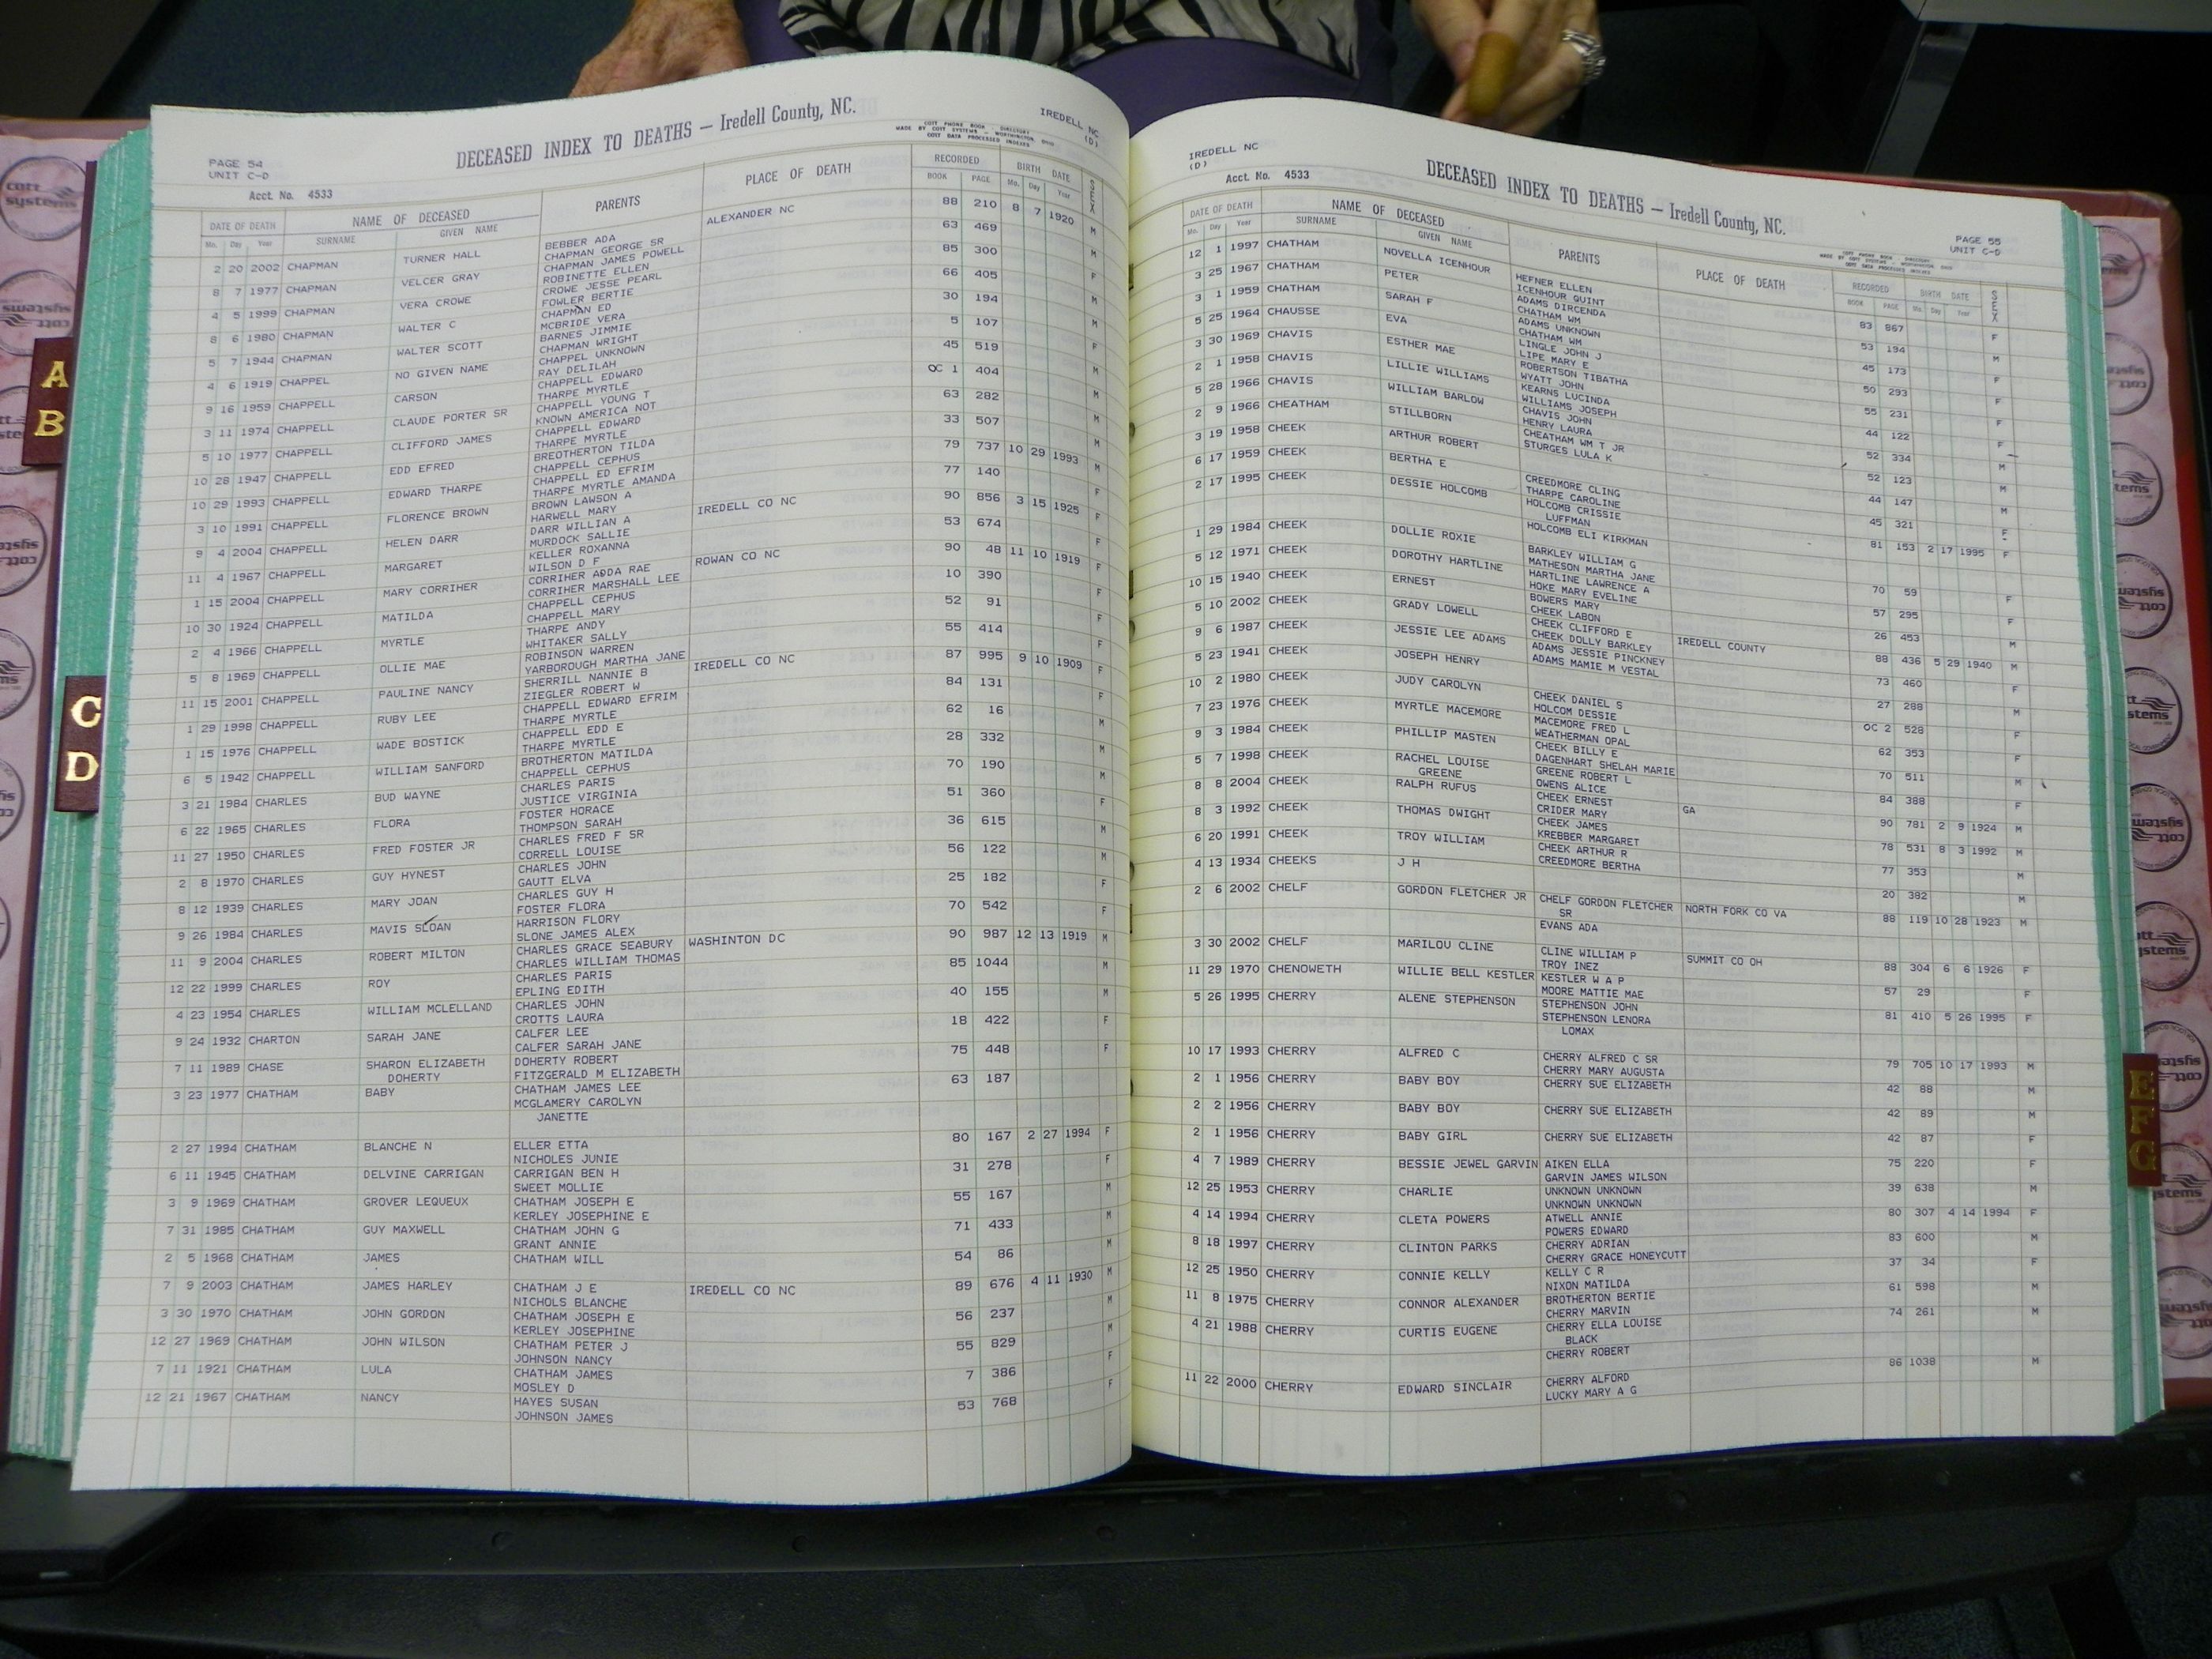 PAGE 54
UNIT C-D
Acct. No. 4533
DECEASED INDEX TO DEATHS — Iredell County, NC.
COTT PHONE BOOK - DIRECTORY
MADE BY COTT SYSTEMS - WORTHINGTON, OHIO
COTT DATA PROCESSED INDEXES
IREDELL NC
(D)
DATE OF DEATH NAME OF DECEASED PARENTS PLACE OF DEATH RECORDED BIRTH DATE SEX
Mo. Day Year SURNAME GIVEN NAME BOOK PAGE Mo. Day Year
2 20 2002 CHAPMAN TURNER HALL BEBBER ADA ALEXANDER NC 88 210 8 7 1920 M
CHAPMAN GEORGE SR
8 7 1977 CHAPMAN VELCER GRAY CHAPMAN JAMES POWELL 63 469 M
ROBINETTE ELLEN
4 5 1999 CHAPMAN VERA CROWE CROWE JESSE PEARL 85 300 F
FOWLER BERTIE
8 6 1980 CHAPMAN WALTER C CHAPMAN ED 66 405 M
MCBRIDE VERA
5 7 1944 CHAPMAN WALTER SCOTT BARNES JIMMIE 30 194 M
CHAPMAN WRIGHT
4 6 1919 CHAPPEL NO GIVEN NAME CHAPPEL UNKNOWN 5 107 F
RAY DELILAH
9 16 1959 CHAPPELL CARSON CHAPPELL EDWARD 45 519 M
THARPE MYRTLE
3 11 1974 CHAPPELL CLAUDE PORTER SR CHAPPELL YOUNG T OC 1 404 M
KNOWN AMERICA NOT
5 10 1977 CHAPPELL CLIFFORD JAMES CHAPPELL EDWARD 63 282 M
THARPE MYRTLE
10 28 1947 CHAPPELL EDD EFRED BREOTHERTON TILDA 33 507 M
CHAPPELL CEPHUS
10 29 1993 CHAPPELL EDWARD THARPE CHAPPELL ED EFRIM 79 737 10 29 1993 M
THARPE MYRTLE AMANDA
3 10 1991 CHAPPELL FLORENCE BROWN BROWN LAWSON A 77 140 F
HARWELL MARY
9 4 2004 CHAPPELL HELEN DARR DARR WILLIAN A IREDELL CO NC 90 856 3 15 1925 F
MURDOCK SALLIE
11 4 1967 CHAPPELL MARGARET KELLER ROXANNA 53 674 F
WILSON D F
1 15 2004 CHAPPELL MARY CORRIHER CORRIHER ADDA RAE ROWAN CO NC 90 48 11 10 1919 F
CORRIHER MARSHALL LEE
10 30 1924 CHAPPELL MATILDA CHAPPELL CEPHUS 10 390 F
CHAPPELL MARY
2 4 1966 CHAPPELL MYRTLE THARPE ANDY 52 91 F
WHITAKER SALLY
5 8 1969 CHAPPELL OLLIE MAE ROBINSON WARREN 55 414 F
YARBOROUGH MARTHA JANE
11 15 2001 CHAPPELL PAULINE NANCY SHERRILL NANNIE B IREDELL CO NC 87 995 9 10 1909 F
ZIEGLER ROBERT W
1 29 1998 CHAPPELL RUBY LEE CHAPPELL EDWARD EFRIM 84 131 F
THARPE MYRTLE
1 15 1976 CHAPPELL WADE BOSTICK CHAPPELL EDD E 62 16 M
THARPE MYRTLE
6 5 1942 CHAPPELL WILLIAM SANFORD BROTHERTON MATILDA 28 332 M
CHAPPELL CEPHUS
3 21 1984 CHARLES BUD WAYNE CHARLES PARIS 70 190 M
JUSTICE VIRGINIA
6 22 1965 CHARLES FLORA FOSTER HORACE 51 360 F
THOMPSON SARAH
11 27 1950 CHARLES FRED FOSTER JR CHARLES FRED F SR 36 615 M
CORRELL LOUISE
2 8 1970 CHARLES GUY HYNEST CHARLES JOHN 56 122 M
GAUTT ELVA
8 12 1939 CHARLES MARY JOAN CHARLES GUY H 25 182 F
FOSTER FLORA
9 26 1984 CHARLES MAVIS SLOAN HARRISON FLORY 70 542 F
SLONE JAMES ALEX
11 9 2004 CHARLES ROBERT MILTON CHARLES GRACE SEABURY WASHINTON DC 90 987 12 13 1919 M
CHARLES WILLIAM THOMAS
12 22 1999 CHARLES ROY CHARLES PARIS 85 1044 M
EPLING EDITH
4 23 1954 CHARLES WILLIAM MCLELLAND CHARLES JOHN 40 155 M
CROTTS LAURA
9 24 1932 CHARTON SARAH JANE CALFER LEE 18 422 F
CALFER SARAH JANE
7 11 1989 CHASE SHARON ELIZABETH DOHERTY ROBERT 75 448 F
DOHERTY FITZGERALD M ELIZABETH
3 23 1977 CHATHAM BABY CHATHAM JAMES LEE 63 187
MCGLAMERY CAROLYN
JANETTE
2 27 1994 CHATHAM BLANCHE N ELLER ETTA 80 167 2 27 1994 F
NICHOLES JUNIE
6 11 1945 CHATHAM DELVINE CARRIGAN CARRIGAN BEN H 31 278 F
SWEET MOLLIE
3 9 1969 CHATHAM GROVER LEQUEUX CHATHAM JOSEPH E 55 167 M
KERLEY JOSEPHINE E
7 31 1985 CHATHAM GUY MAXWELL CHATHAM JOHN G 71 433 M
GRANT ANNIE
2 5 1968 CHATHAM JAMES CHATHAM WILL 54 86 M
7 9 2003 CHATHAM JAMES HARLEY CHATHAM J E IREDELL CO NC 89 676 4 11 1930 M
NICHOLS BLANCHE
3 30 1970 CHATHAM JOHN GORDON CHATHAM JOSEPH E 56 237 M
KERLEY JOSEPHINE
12 27 1969 CHATHAM JOHN WILSON CHATHAM PETER J 55 829 M
JOHNSON NANCY
7 11 1921 CHATHAM LULA CHATHAM JAMES 7 386 F
MOSLEY D
12 21 1967 CHATHAM NANCY HAYES SUSAN 53 768 F
JOHNSON JAMES
IREDELL NC
(D)
Acct. No. 4533
DECEASED INDEX TO DEATHS — Iredell County, NC.
PAGE 55
UNIT C-D
DATE OF DEATH NAME OF DECEASED PARENTS PLACE OF DEATH RECORDED BIRTH DATE SEX
Mo. Day Year SURNAME GIVEN NAME BOOK PAGE Mo. Day Year
12 1 1997 CHATHAM NOVELLA ICENHOUR HEFNER ELLEN 83 867 F
ICENHOUR QUINT
3 25 1967 CHATHAM PETER ADAMS DIRCENDA 53 194 M
CHATHAM WM
3 1 1959 CHATHAM SARAH F ADAMS UNKNOWN 45 173 F
CHATHAM WM
5 25 1964 CHAUSSE EVA LINGLE JOHN J 50 293 F
LIPE MARY E
3 30 1969 CHAVIS ESTHER MAE ROBERTSON TIBATHA 55 231 F
WYATT JOHN
2 1 1958 CHAVIS LILLIE WILLIAMS KEARNS LUCINDA 44 122 F
WILLIAMS JOSEPH
5 28 1966 CHAVIS WILLIAM BARLOW CHAVIS JOHN 52 334 M
HENRY LAURA
2 9 1966 CHEATHAM STILLBORN CHEATHAM WM T JR 52 123 M
STURGES LULA K
3 19 1958 CHEEK ARTHUR ROBERT 44 147 M
6 17 1959 CHEEK BERTHA E CREEDMORE CLING 45 321 F
THARPE CAROLINE
2 17 1995 CHEEK DESSIE HOLCOMB HOLCOMB CRISSIE 81 153 2 17 1995 F
LUFFMAN
HOLCOMB ELI KIRKMAN
1 29 1984 CHEEK DOLLIE ROXIE BARKLEY WILLIAM G 70 59 F
MATHESON MARTHA JANE
5 12 1971 CHEEK DOROTHY HARTLINE HARTLINE LAWRENCE A 57 295 F
HOKE MARY EVELINE
10 15 1940 CHEEK ERNEST BOWERS MARY 26 453 M
CHEEK LABON
5 10 2002 CHEEK GRADY LOWELL CHEEK CLIFFORD E IREDELL COUNTY 88 436 5 29 1940 M
CHEEK DOLLY BARKLEY
9 6 1987 CHEEK JESSIE LEE ADAMS ADAMS JESSIE PINCKNEY 73 460 F
ADAMS MAMIE M VESTAL
5 23 1941 CHEEK JOSEPH HENRY 27 288 M
10 2 1980 CHEEK JUDY CAROLYN CHEEK DANIEL S OC 2 528 F
HOLCOM DESSIE
7 23 1976 CHEEK MYRTLE MACEMORE MACEMORE FRED L 62 353 F
WEATHERMAN OPAL
9 3 1984 CHEEK PHILLIP MASTEN CHEEK BILLY E 70 511 M
DAGENHART SHELAH MARIE
5 7 1998 CHEEK RACHEL LOUISE GREENE ROBERT L 84 388 F
GREENE OWENS ALICE
8 8 2004 CHEEK RALPH RUFUS CHEEK ERNEST GA 90 781 2 9 1924 M
CRIDER MARY
8 3 1992 CHEEK THOMAS DWIGHT CHEEK JAMES 78 531 8 3 1992 M
KREBBER MARGARET
6 20 1991 CHEEK TROY WILLIAM CHEEK ARTHUR R 77 353 M
CREEDMORE BERTHA
4 13 1934 CHEEKS J H 20 382 M
2 6 2002 CHELF GORDON FLETCHER JR CHELF GORDON FLETCHER NORTH FORK CO VA 88 119 10 28 1923 M
SR
EVANS ADA
3 30 2002 CHELF MARILOU CLINE CLINE WILLIAM P SUMMIT CO OH 88 304 6 6 1926 F
TROY INEZ
11 29 1970 CHENOWETH WILLIE BELL KESTLER KESTLER W A P 57 29 F
MOORE MATTIE MAE
5 26 1995 CHERRY ALENE STEPHENSON STEPHENSON JOHN 81 410 5 26 1995 F
STEPHENSON LENORA
LOMAX
10 17 1993 CHERRY ALFRED C CHERRY ALFRED C SR 79 705 10 17 1993 M
CHERRY MARY AUGUSTA
2 1 1956 CHERRY BABY BOY CHERRY SUE ELIZABETH 42 88 M
2 2 1956 CHERRY BABY BOY CHERRY SUE ELIZABETH 42 89 M
2 1 1956 CHERRY BABY GIRL CHERRY SUE ELIZABETH 42 87 F
4 7 1989 CHERRY BESSIE JEWEL GARVIN AIKEN ELLA 75 220 F
GARVIN JAMES WILSON
12 25 1953 CHERRY CHARLIE UNKNOWN UNKNOWN 39 638 M
UNKNOWN UNKNOWN
4 14 1994 CHERRY CLETA POWERS ATWELL ANNIE 80 307 4 14 1994 F
POWERS EDWARD
8 18 1997 CHERRY CLINTON PARKS CHERRY ADRIAN 83 600 M
CHERRY GRACE HONEYCUTT
12 25 1950 CHERRY CONNIE KELLY KELLY C R 37 34 F
NIXON MATILDA
11 8 1975 CHERRY CONNOR ALEXANDER BROTHERTON BERTIE 61 598 M
CHERRY MARVIN
4 21 1988 CHERRY CURTIS EUGENE CHERRY ELLA LOUISE 74 261 M
BLACK
CHERRY ROBERT
11 22 2000 CHERRY EDWARD SINCLAIR CHERRY ALFORD 86 1038 M
LUCKY MARY A G
A
B
C
D
E
F
G
cott
systems